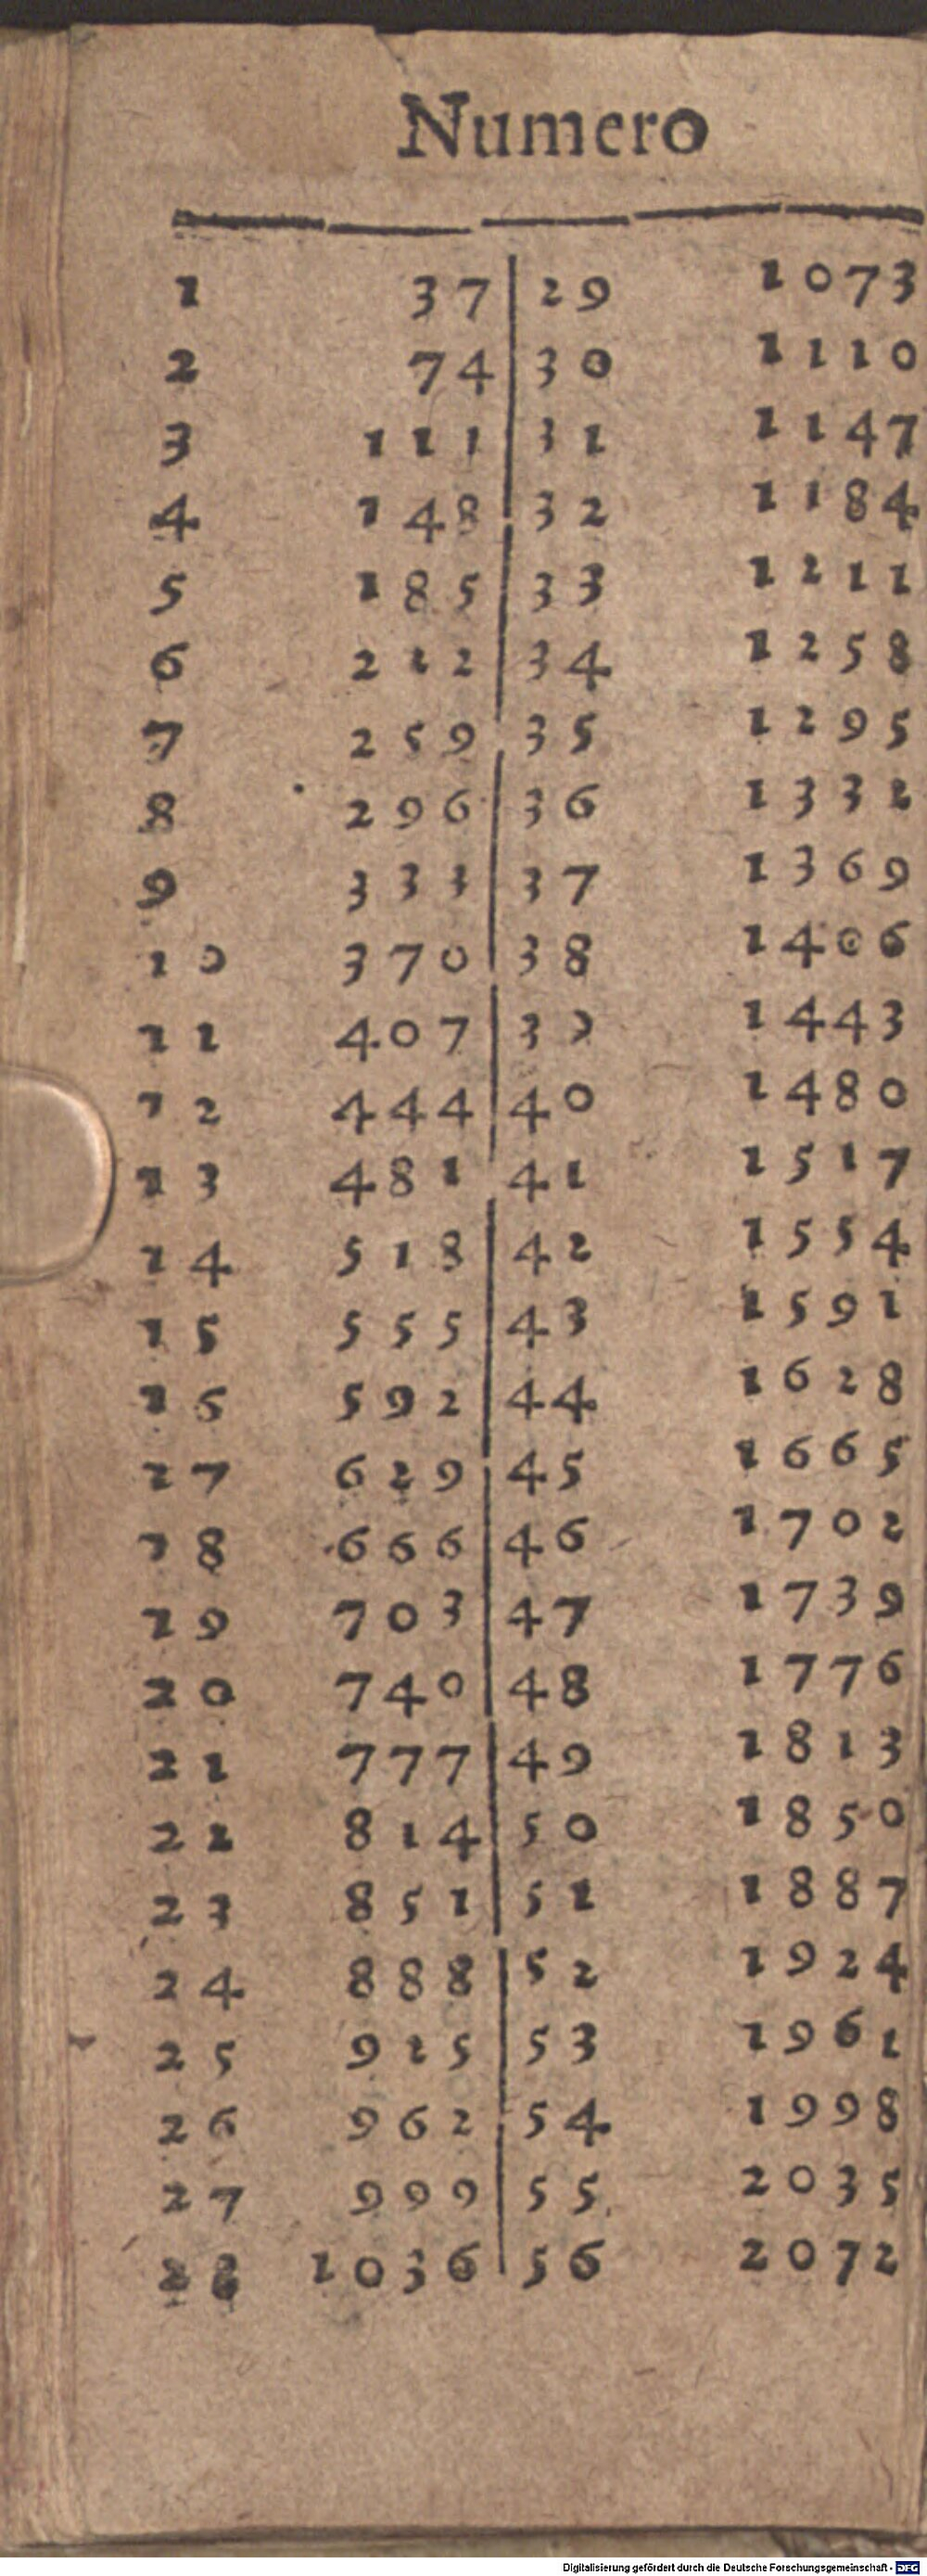 Numero
1 37 29 1073
2 74 30 1110
3 111 31 1147
4 148 32 1184
5 185 33 1211
6 222 34 1258
7 259 35 1295
8 296 36 1332
9 333 37 1369
10 370 38 1406
11 407 39 1443
12 444 40 1480
13 481 41 1517
14 518 42 1554
15 555 43 1591
16 592 44 1628
17 629 45 1665
18 666 46 1702
19 703 47 1739
20 740 48 1776
21 777 49 1813
22 814 50 1850
23 851 51 1887
24 888 52 1924
25 925 53 1961
26 962 54 1998
27 999 55 2035
28 1036 56 2072
Digitalisierung gefördert durch die Deutsche Forschungsgemeinschaft - DFG